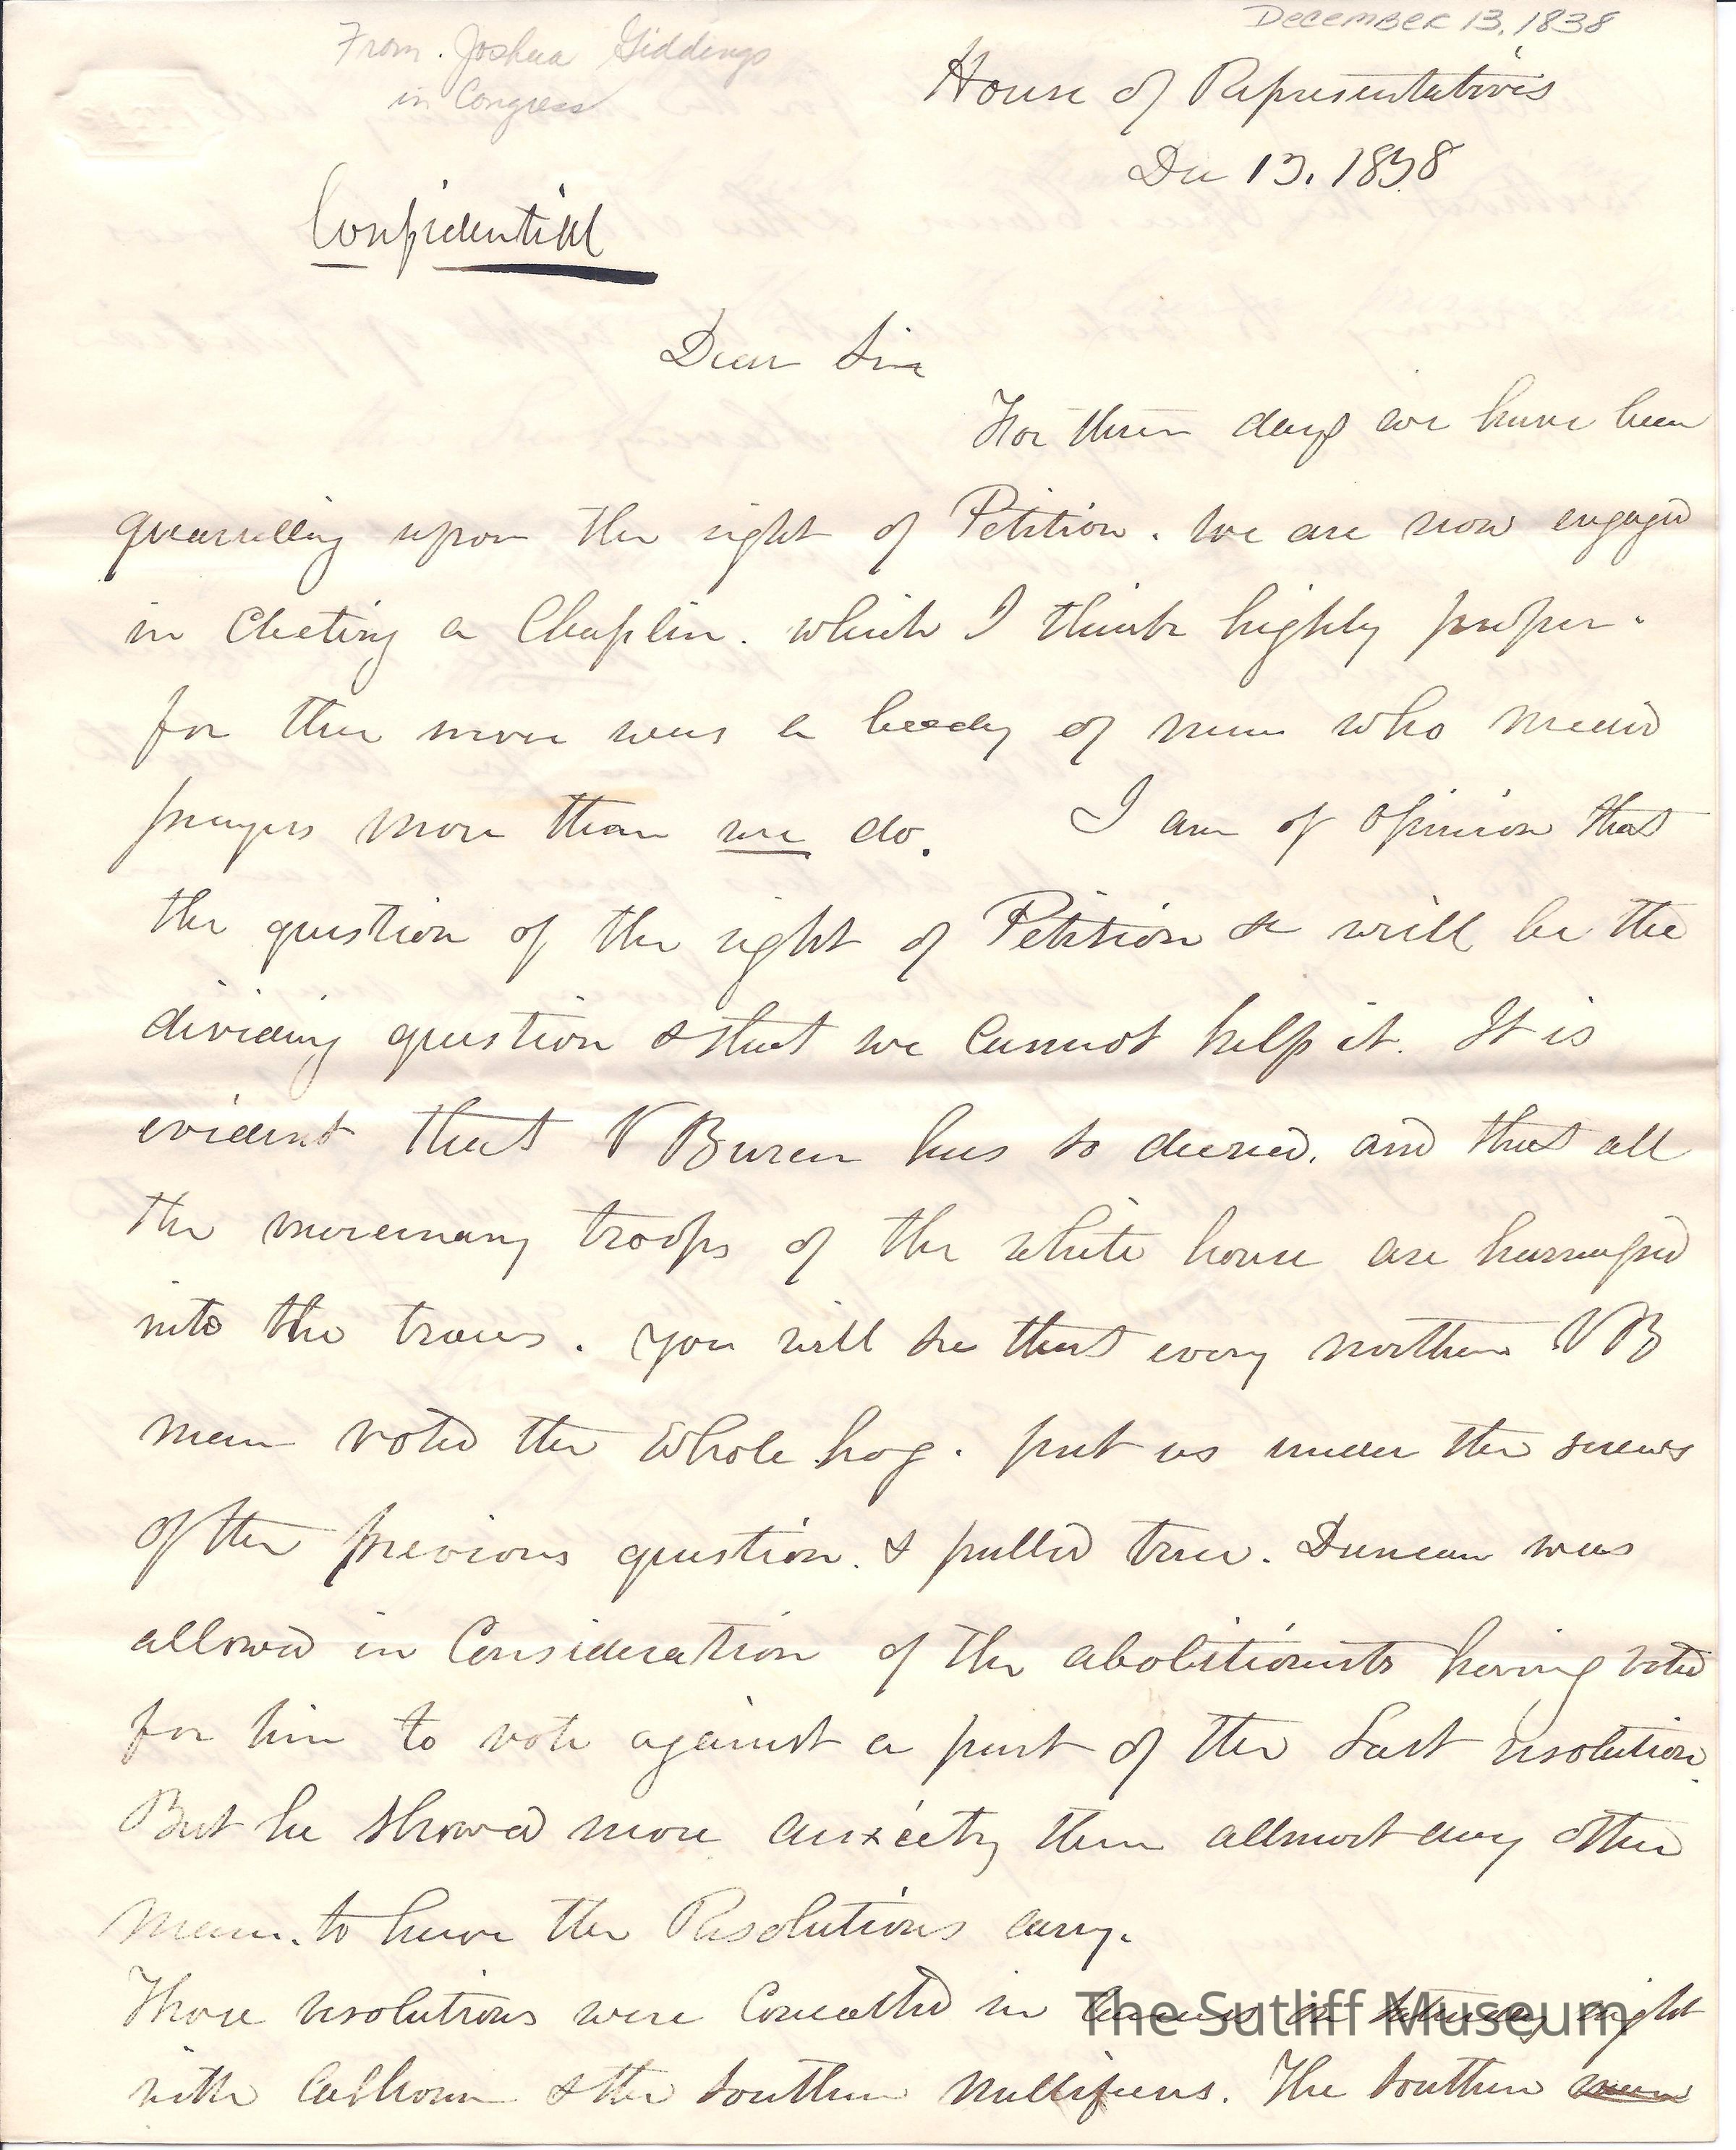 December 13, 1838
From Joshua Giddings
in Congress
House of Representatives
Dec 13. 1838
Confidential
Dear Sir
For three days we have been
quarrelling upon the right of Petition. We are now engaged
in Electing a Chaplin. which I think highly proper.
for there never was a body of men who need
prayers more than we do. I am of opinion that
the question of the right of Petition & will be the
dividing question & that we cannot help it. It is
evident that V Buren has so decreed. and that all
the mercenary troops of the white house are
into the traces. You will see that every northern VB
man voted the whole hog. put us under the screws
of the previous question. & pulled true. Duncan was
allowed in Consideration of the abolitionists having voted
for him to vote against a part of the Last resolution.
But he showed more anxiety then allmost any other
man. to have the Resolutions carry.
Those resolutions were Concocted in caucus on saturday night
with Calhoun & the southern nullifiers. The southern men
The Sutliff Museum